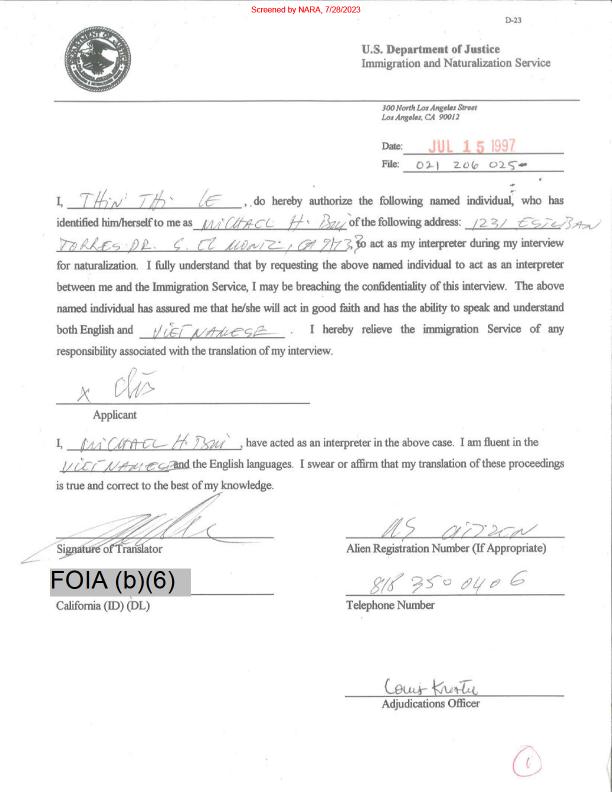 Screened by NARA, 7/28/2023
D-23
U.S. Department of Justice
Immigration and Naturalization Service
300 North Los Angeles Street
Los Angeles, CA 90012
Date: JUL 15 1997
File: 021 206 025
I, THIN THI LE, do hereby authorize the following named individual, who has
identified him/herself to me as MICHAEL H. BUI of the following address: 1231 ESTEBAN
TORRES DR. S. EL MONTE, CA to act as my interpreter during my interview
for naturalization. I fully understand that by requesting the above named individual to act as an interpreter
between me and the Immigration Service, I may be breaching the confidentiality of this interview. The above
named individual has assured me that he/she will act in good faith and has the ability to speak and understand
both English and VIETNAMESE. I hereby relieve the immigration Service of any
responsibility associated with the translation of my interview.
x
Applicant
I, MICHAEL H. BUI, have acted as an interpreter in the above case. I am fluent in the
VIETNAMESE and the English languages. I swear or affirm that my translation of these proceedings
is true and correct to the best of my knowledge.
US CITIZEN
Signature of Translator Alien Registration Number (If Appropriate)
FOIA (b)(6) 818 350 0406
California (ID) (DL) Telephone Number
Louis
Adjudications Officer
1